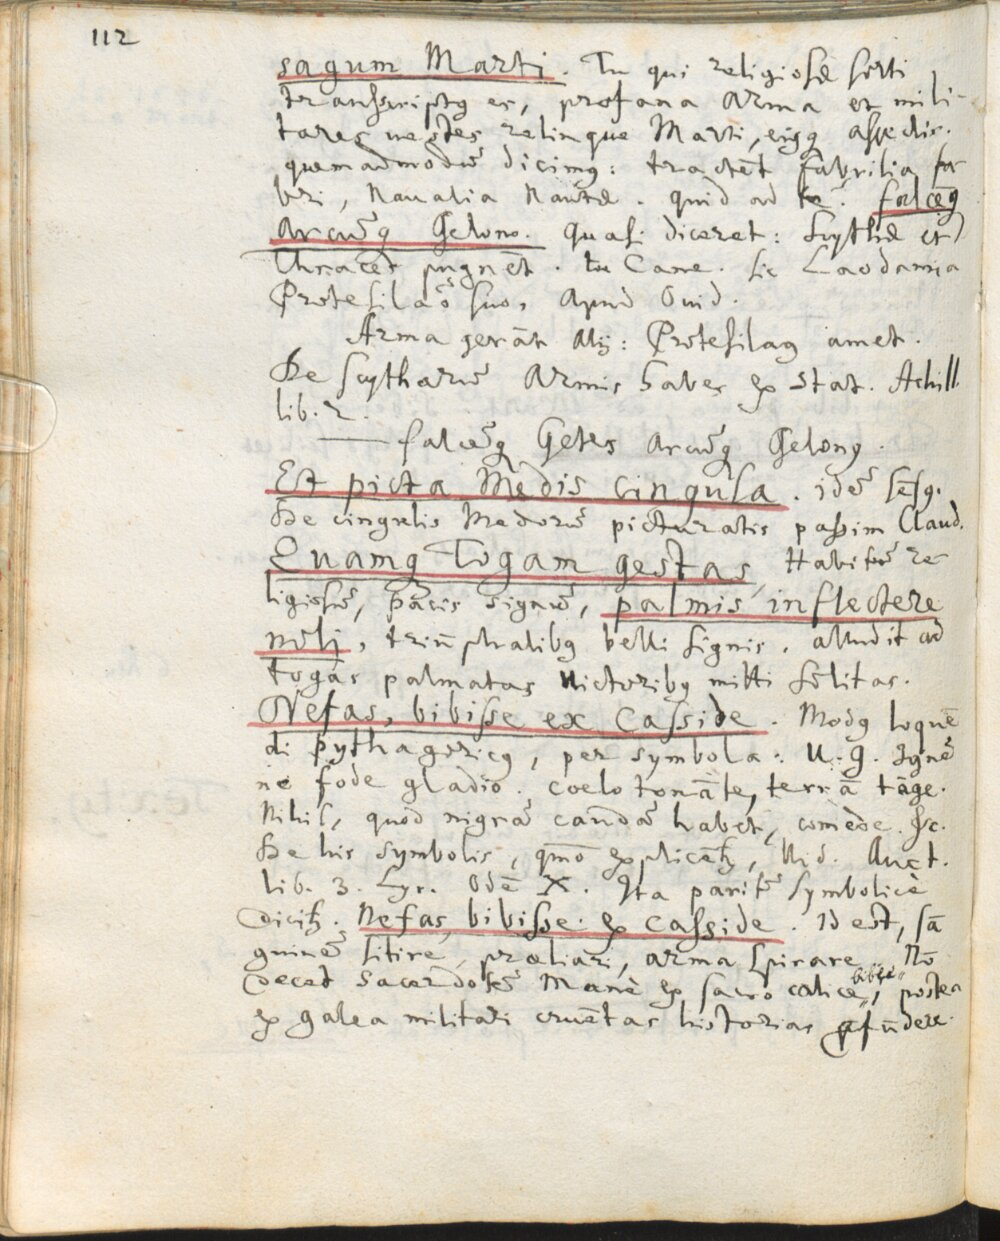 112
sagum Marti. Tu qui religiosæ sorti
transscriptꝯ es, profana Arma et mili-
tares uestes relinque Marti, eisqꝫ assedis.
quemadmodū dicimꝯ: tractēt fabrilia fa
bri, Naualia Nautæ. quid ad te? falcēqꝫ
Arcūqꝫ Gelono. quasi diceret: Scythæ et
Thraces pugnēt. tu Cane. sic Laodamia
Protesilao suo, apud Ouid.
Arma gerāt Alij: Protesilaꝯ amet.
De scytharū Armis habes ex Stat. Achill.
lib. 2
falcēqꝫ Getes arcūqꝫ Gelonꝯ.
Et picta Medis cingula. idē sēsꝯ.
De cingulis Medorū picturatis passim Claud.
Quamqꝫ Togam gestas, Habitū re-
ligiosū, pacis signū, palmis inflectere
noli, triūphalibꝯ belli signis. alludit ad
togas palmatas uictoribꝯ mitti solitas.
Nefas, bibisse ex Casside. Modꝯ loquē
di pythagoricꝯ, per symbola: u. g. Ignē
ne fode gladio. coelo tonāte, terrā tāge.
Nihil, quod nigrā caudā habet, comede. &c.
De his symbolis, quō explicētur, Vid. Auct.
lib. 3. Lyr. Ode X. Ita paritēr symbolicè
dicitur. Nefas, bibisse ex casside. Id est, sā
guinē sitire, præliari, arma spirare. Nō
decet sacerdotē Manè ex sacro calice bibere, postea
ex galea militari cruētas historias effūdere.